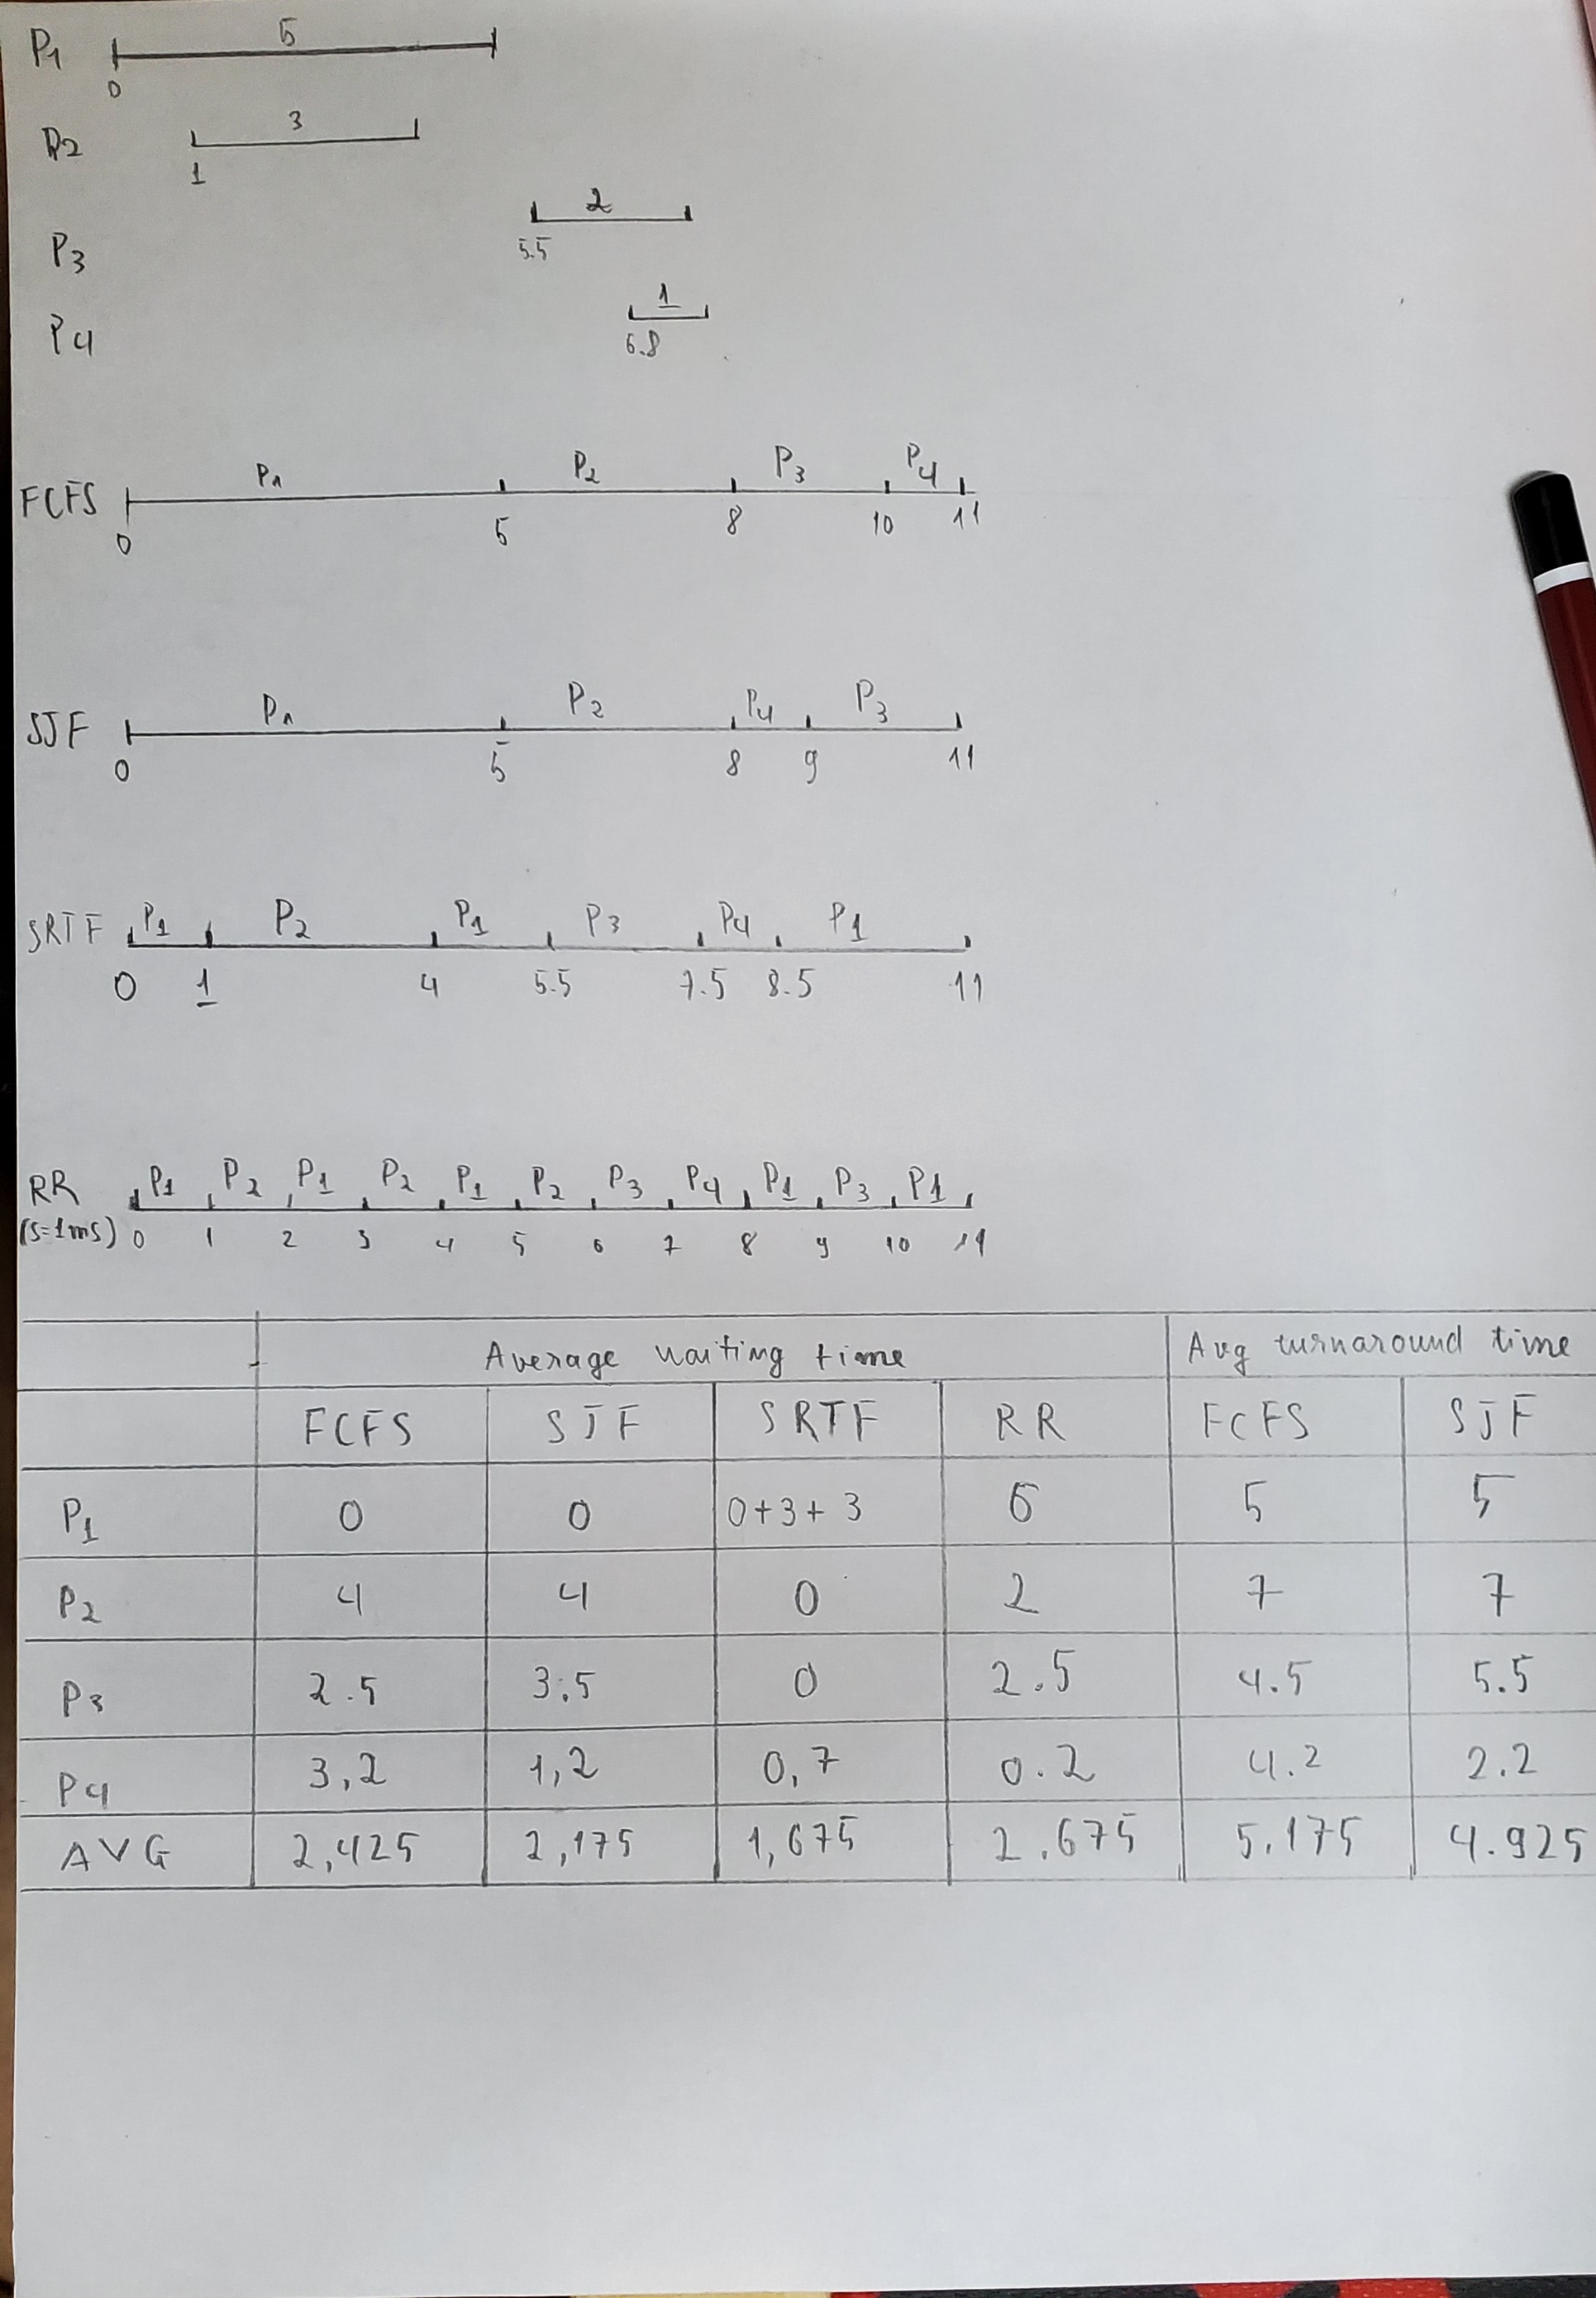 P1 5
0
P2 3
1
P3 2
5.5
P4 1
6.8
FCFS P1 P2 P3 P4
0 5 8 10 11
SJF P1 P2 P4 P3
0 5 8 9 11
SRTF P1 P2 P1 P3 P4 P1
0 1 4 5.5 7.5 8.5 11
RR P1 P2 P1 P2 P1 P2 P3 P4 P1 P3 P1
(s=1ms) 0 1 2 3 4 5 6 7 8 9 10 11
Average waiting time Avg turnaround time
FCFS SJF SRTF RR FCFS SJF
P1 0 0 0+3+3 6 5 5
P2 4 4 0 2 7 7
P3 2.5 3.5 0 2.5 4.5 5.5
P4 3,2 1,2 0,7 0.2 4.2 2.2
AVG 2,425 2,175 1,675 2.675 5.175 4.925